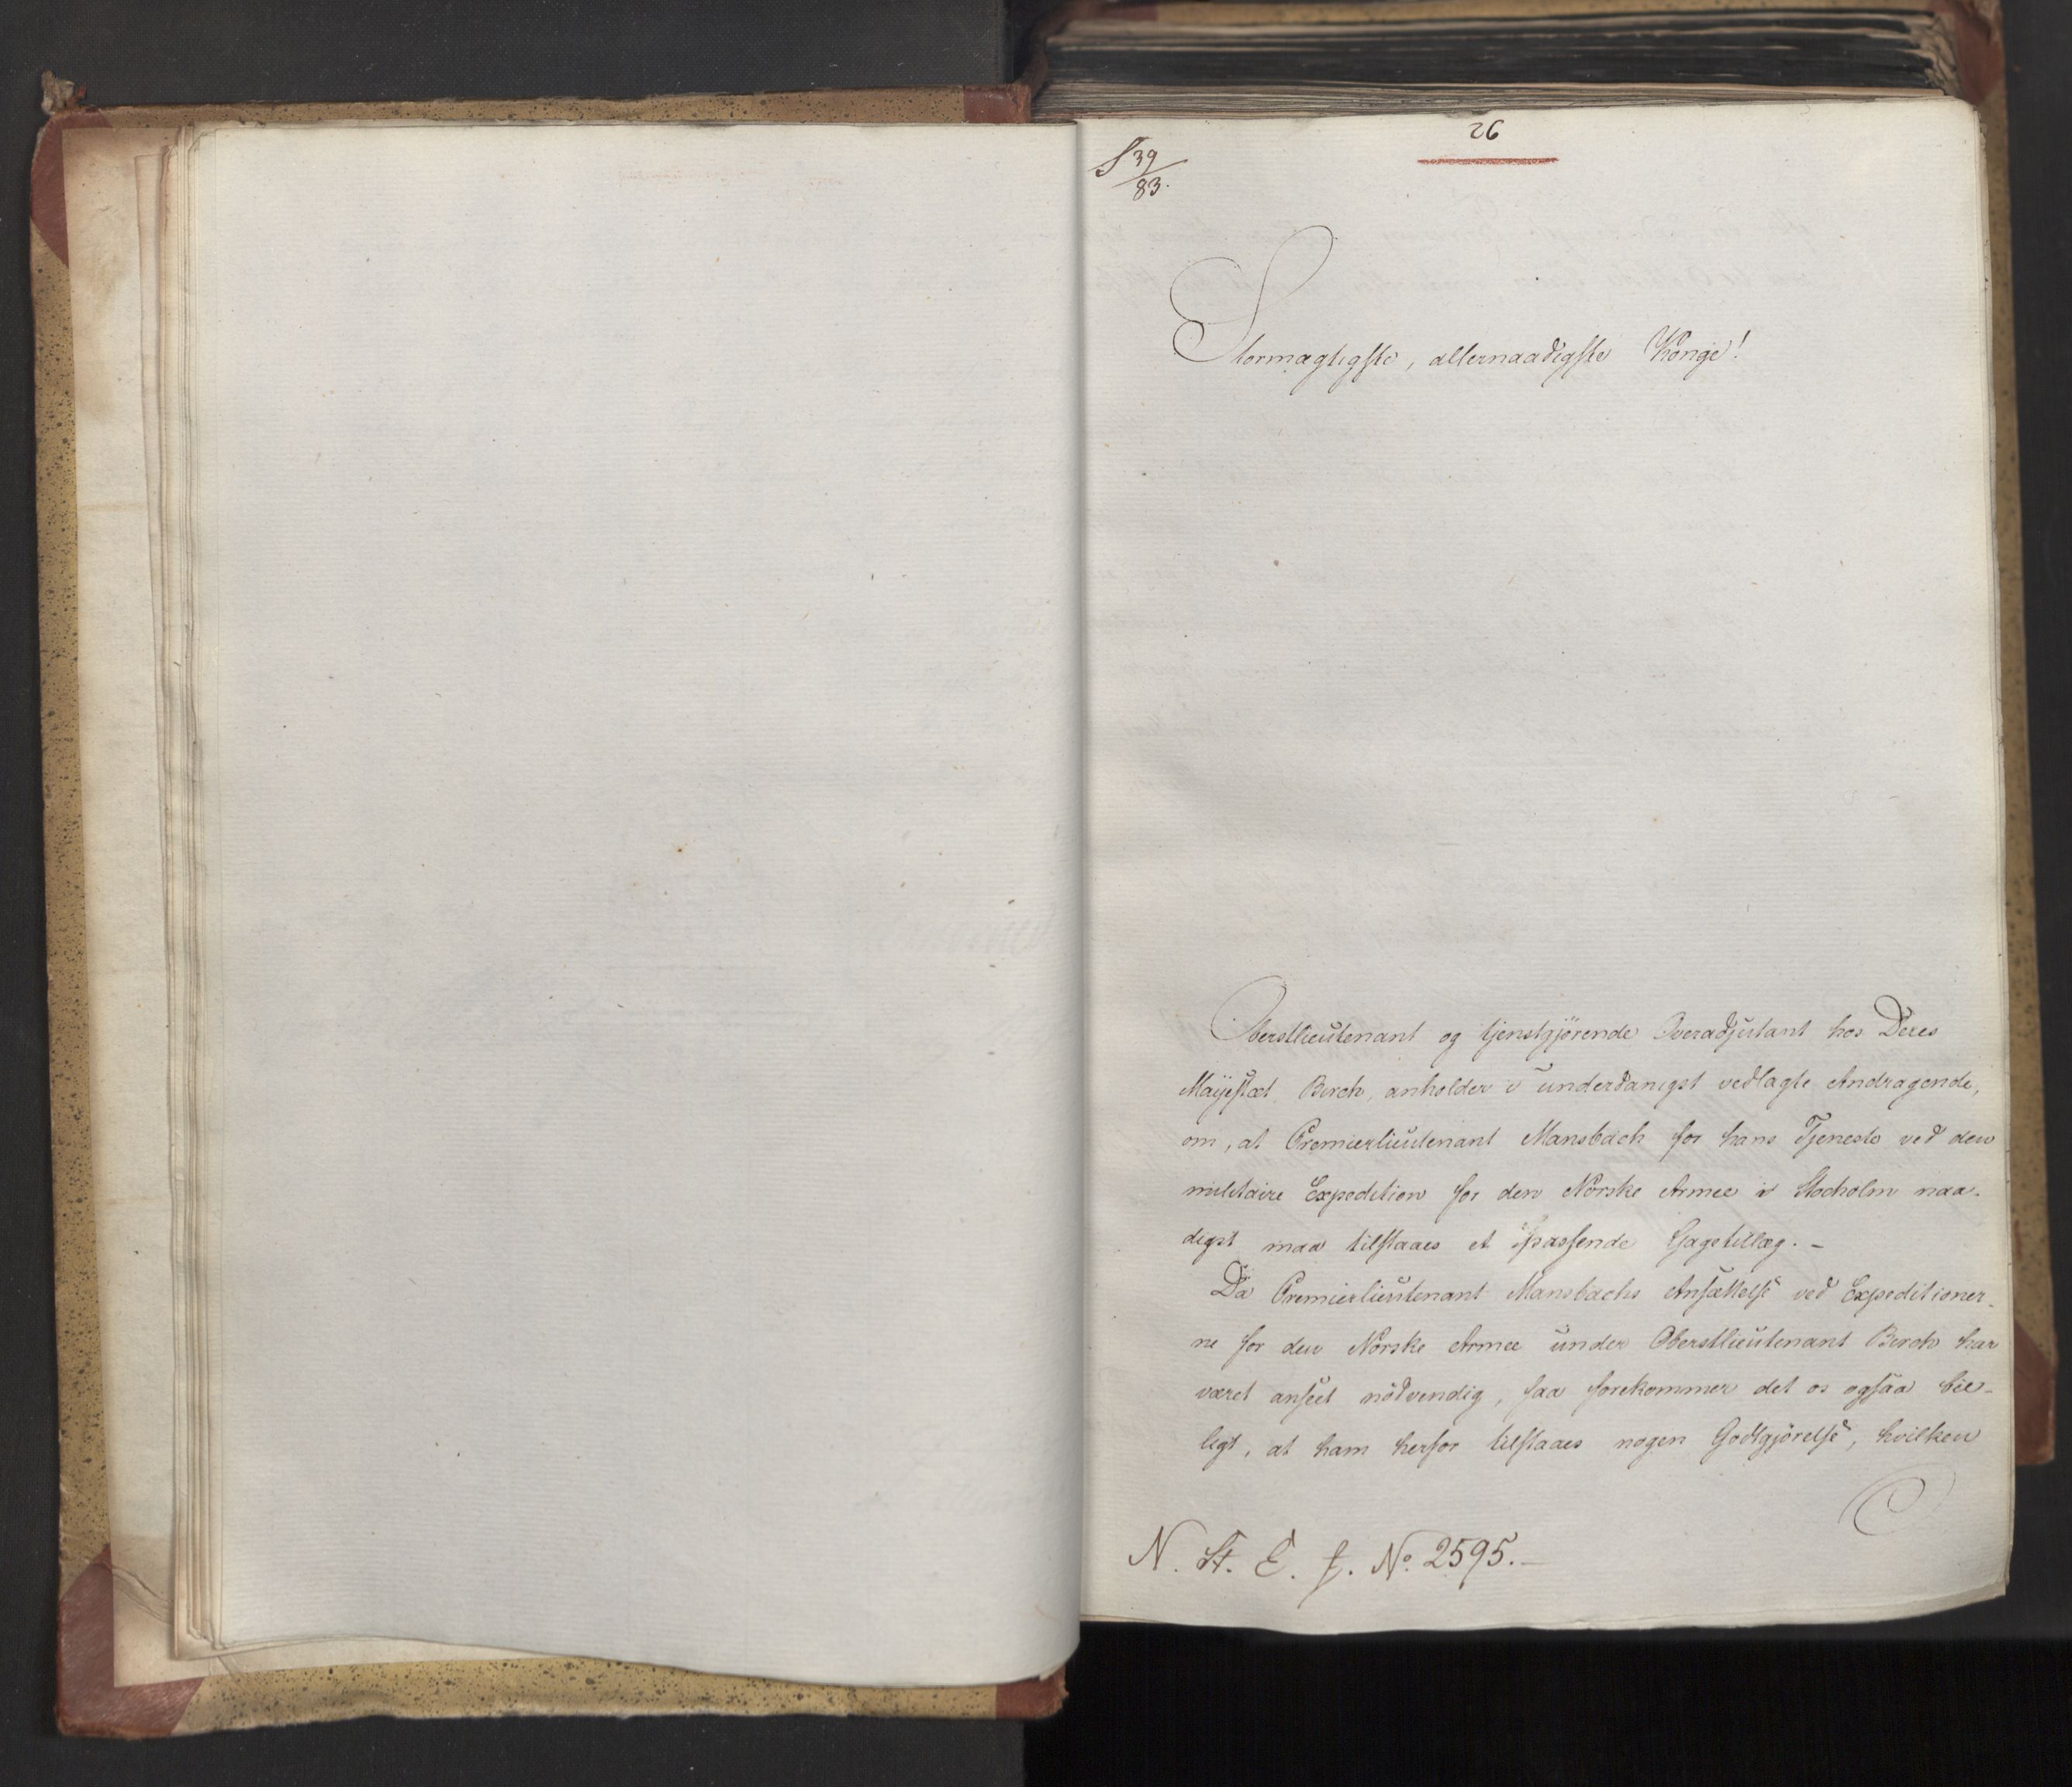 26
S 39/83.
Stormægtigste, allernaadigste Konge!
Oberstlieutenant og tjenstgjörende Overadjutant hos Deres
Majestæt, Birch, anholder i underdanigst vedlagte Andragende,
om, at Premierlieutenant Mansbach for hans Tjeneste ved den
militaire Expedition for den Norske Armee i Stocholm naa-
digst maa tilstaaes et passende Gagetillæg. -
Da Premierlieutenant Mansbachs Ansættelse ved Expeditioner-
ne for den Norske Armee under Oberstlieutenant Birch har
været anseet nödvendig, saa forekommer det os ogsaa bil-
ligt, at ham herfor tilstaaes nogen Godtgjörelse, hvilken
N. St. E. f. No. 2595. -